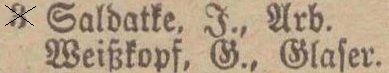 8 Saldatke, J., Arb.
Weißkopf, G., Glaser.